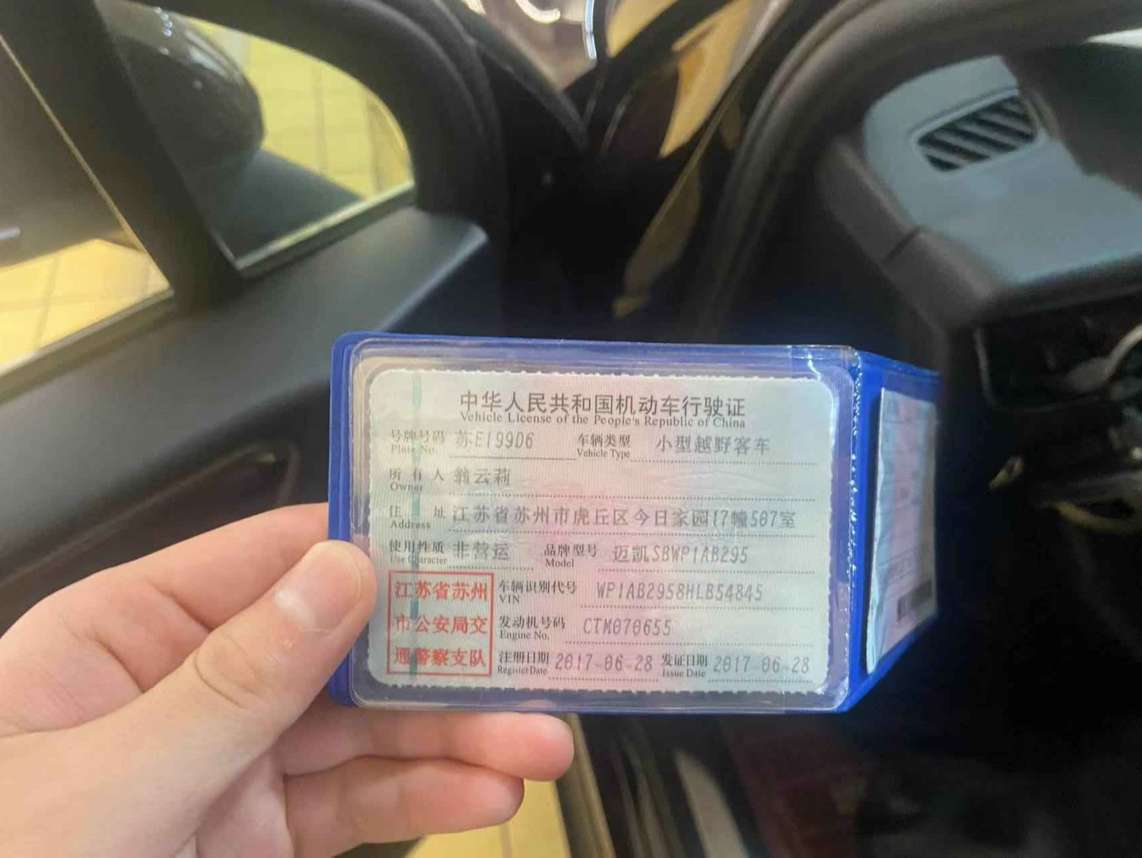 中华人民共和国机动车行驶证
Vehicle License of the People's Republic of China
号牌号码 苏E199D6 车辆类型 小型越野客车
Plate No. Vehicle Type
所有人 翁云莉
Owner
住址 江苏省苏州市虎丘区今日家园17幢507室
Address
使用性质 非营运 品牌型号 迈凯SBWP1AB295
Use Character Model
江苏省苏州
市公安局交
通警察支队
车辆识别代号 WP1AB2958HLB54845
VIN
发动机号码 CTM070655
Engine No.
注册日期 2017-06-28 发证日期 2017-06-28
Register Date Issue Date